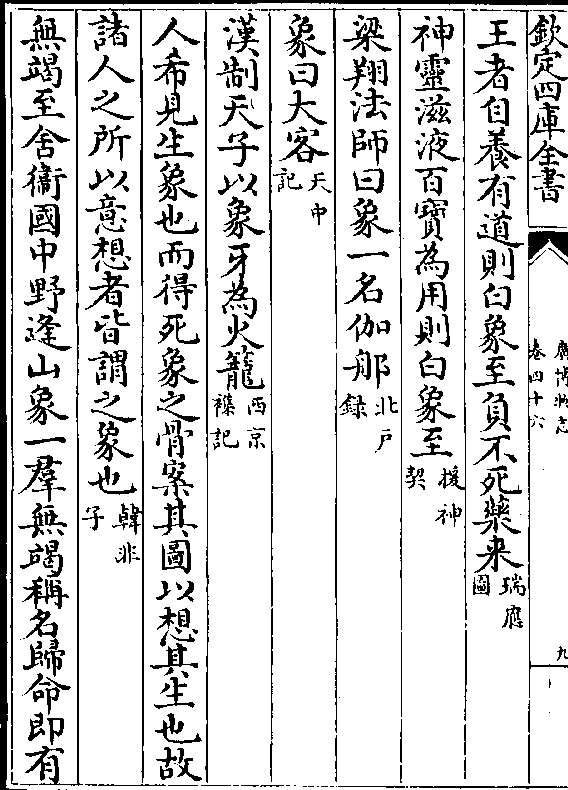 欽定四庫全書
廣博物志
卷四十六
九
王者自養有道則白象至負不死藥来瑞應圖
神靈滋液百寶為用則白象至援神契
梁翔法師曰象一名伽那北戶録
象曰大客天中記
漢制天子以象牙為火籠西京襍記
人希見生象也而得死象之骨案其圖以想其生也故
諸人之所以意想者皆謂之象也韓非子
無竭至舍衞國中野逢山象一羣無竭稱名歸命即有